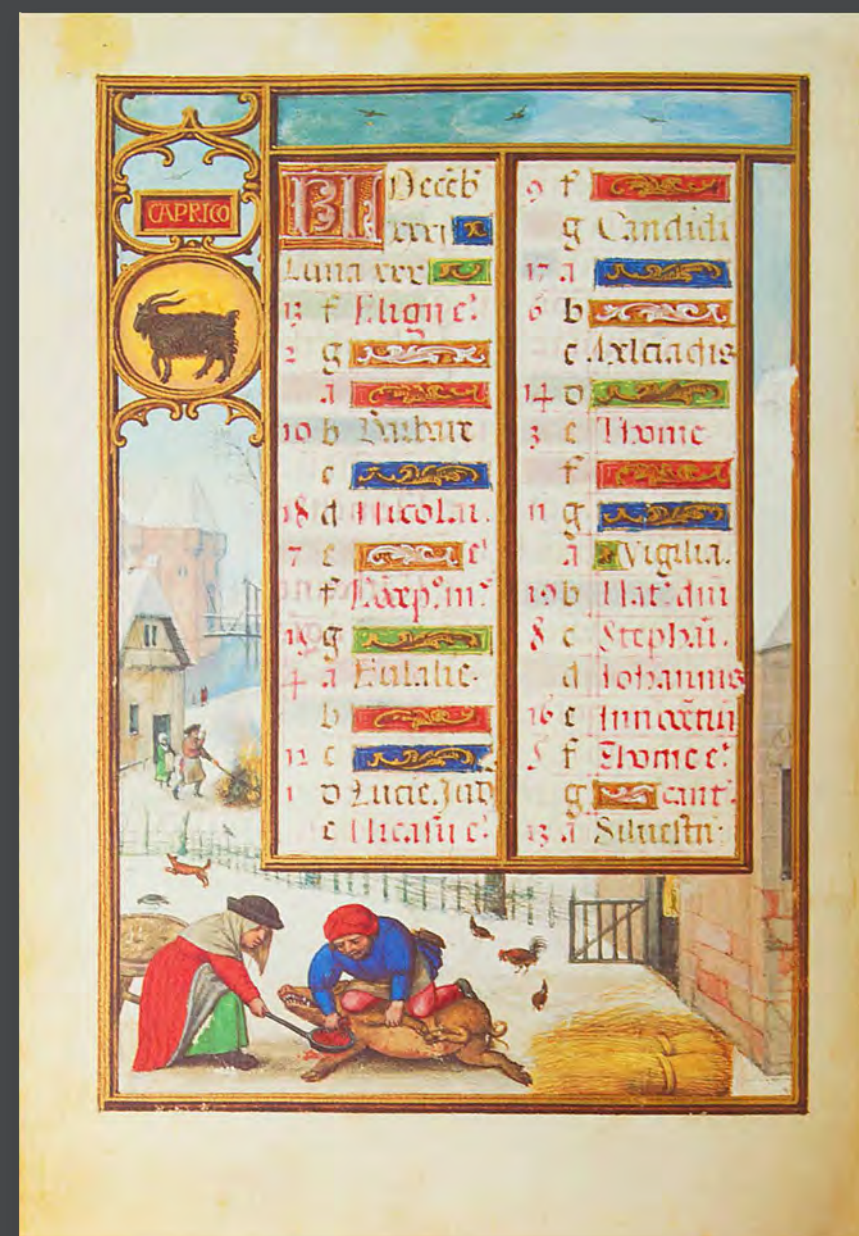 CAPRICO
KL Deceb
xxxj
Luna xxx
13 f Eligii e
2 g
a
10 b Barbare
c
18 d Nicolai.
7 e e
f
19 g
4 a Eulalie.
b
12 c
1 d Lucie. Jud
e Nicasii e
9 f
g Candidi
17 a
6 b
c
14 d
3 e Thome
f
11 g
a Vigilia.
19 b Nat. dni
8 c Stephani.
d Johannis
16 e Innocentum
5 f Thome e
g cant.
13 a Silvestri.